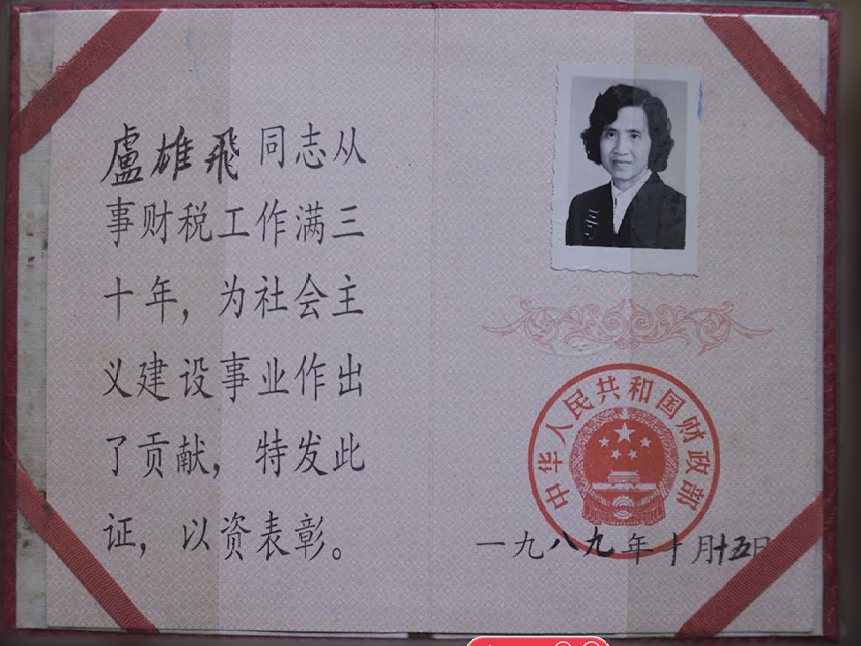 盧雄飛同志从
事财税工作满三
十年，为社会主
义建设事业作出
了贡献，特发此
证，以资表彰。
中华人民共和国财政部
一九八九年十月十五日